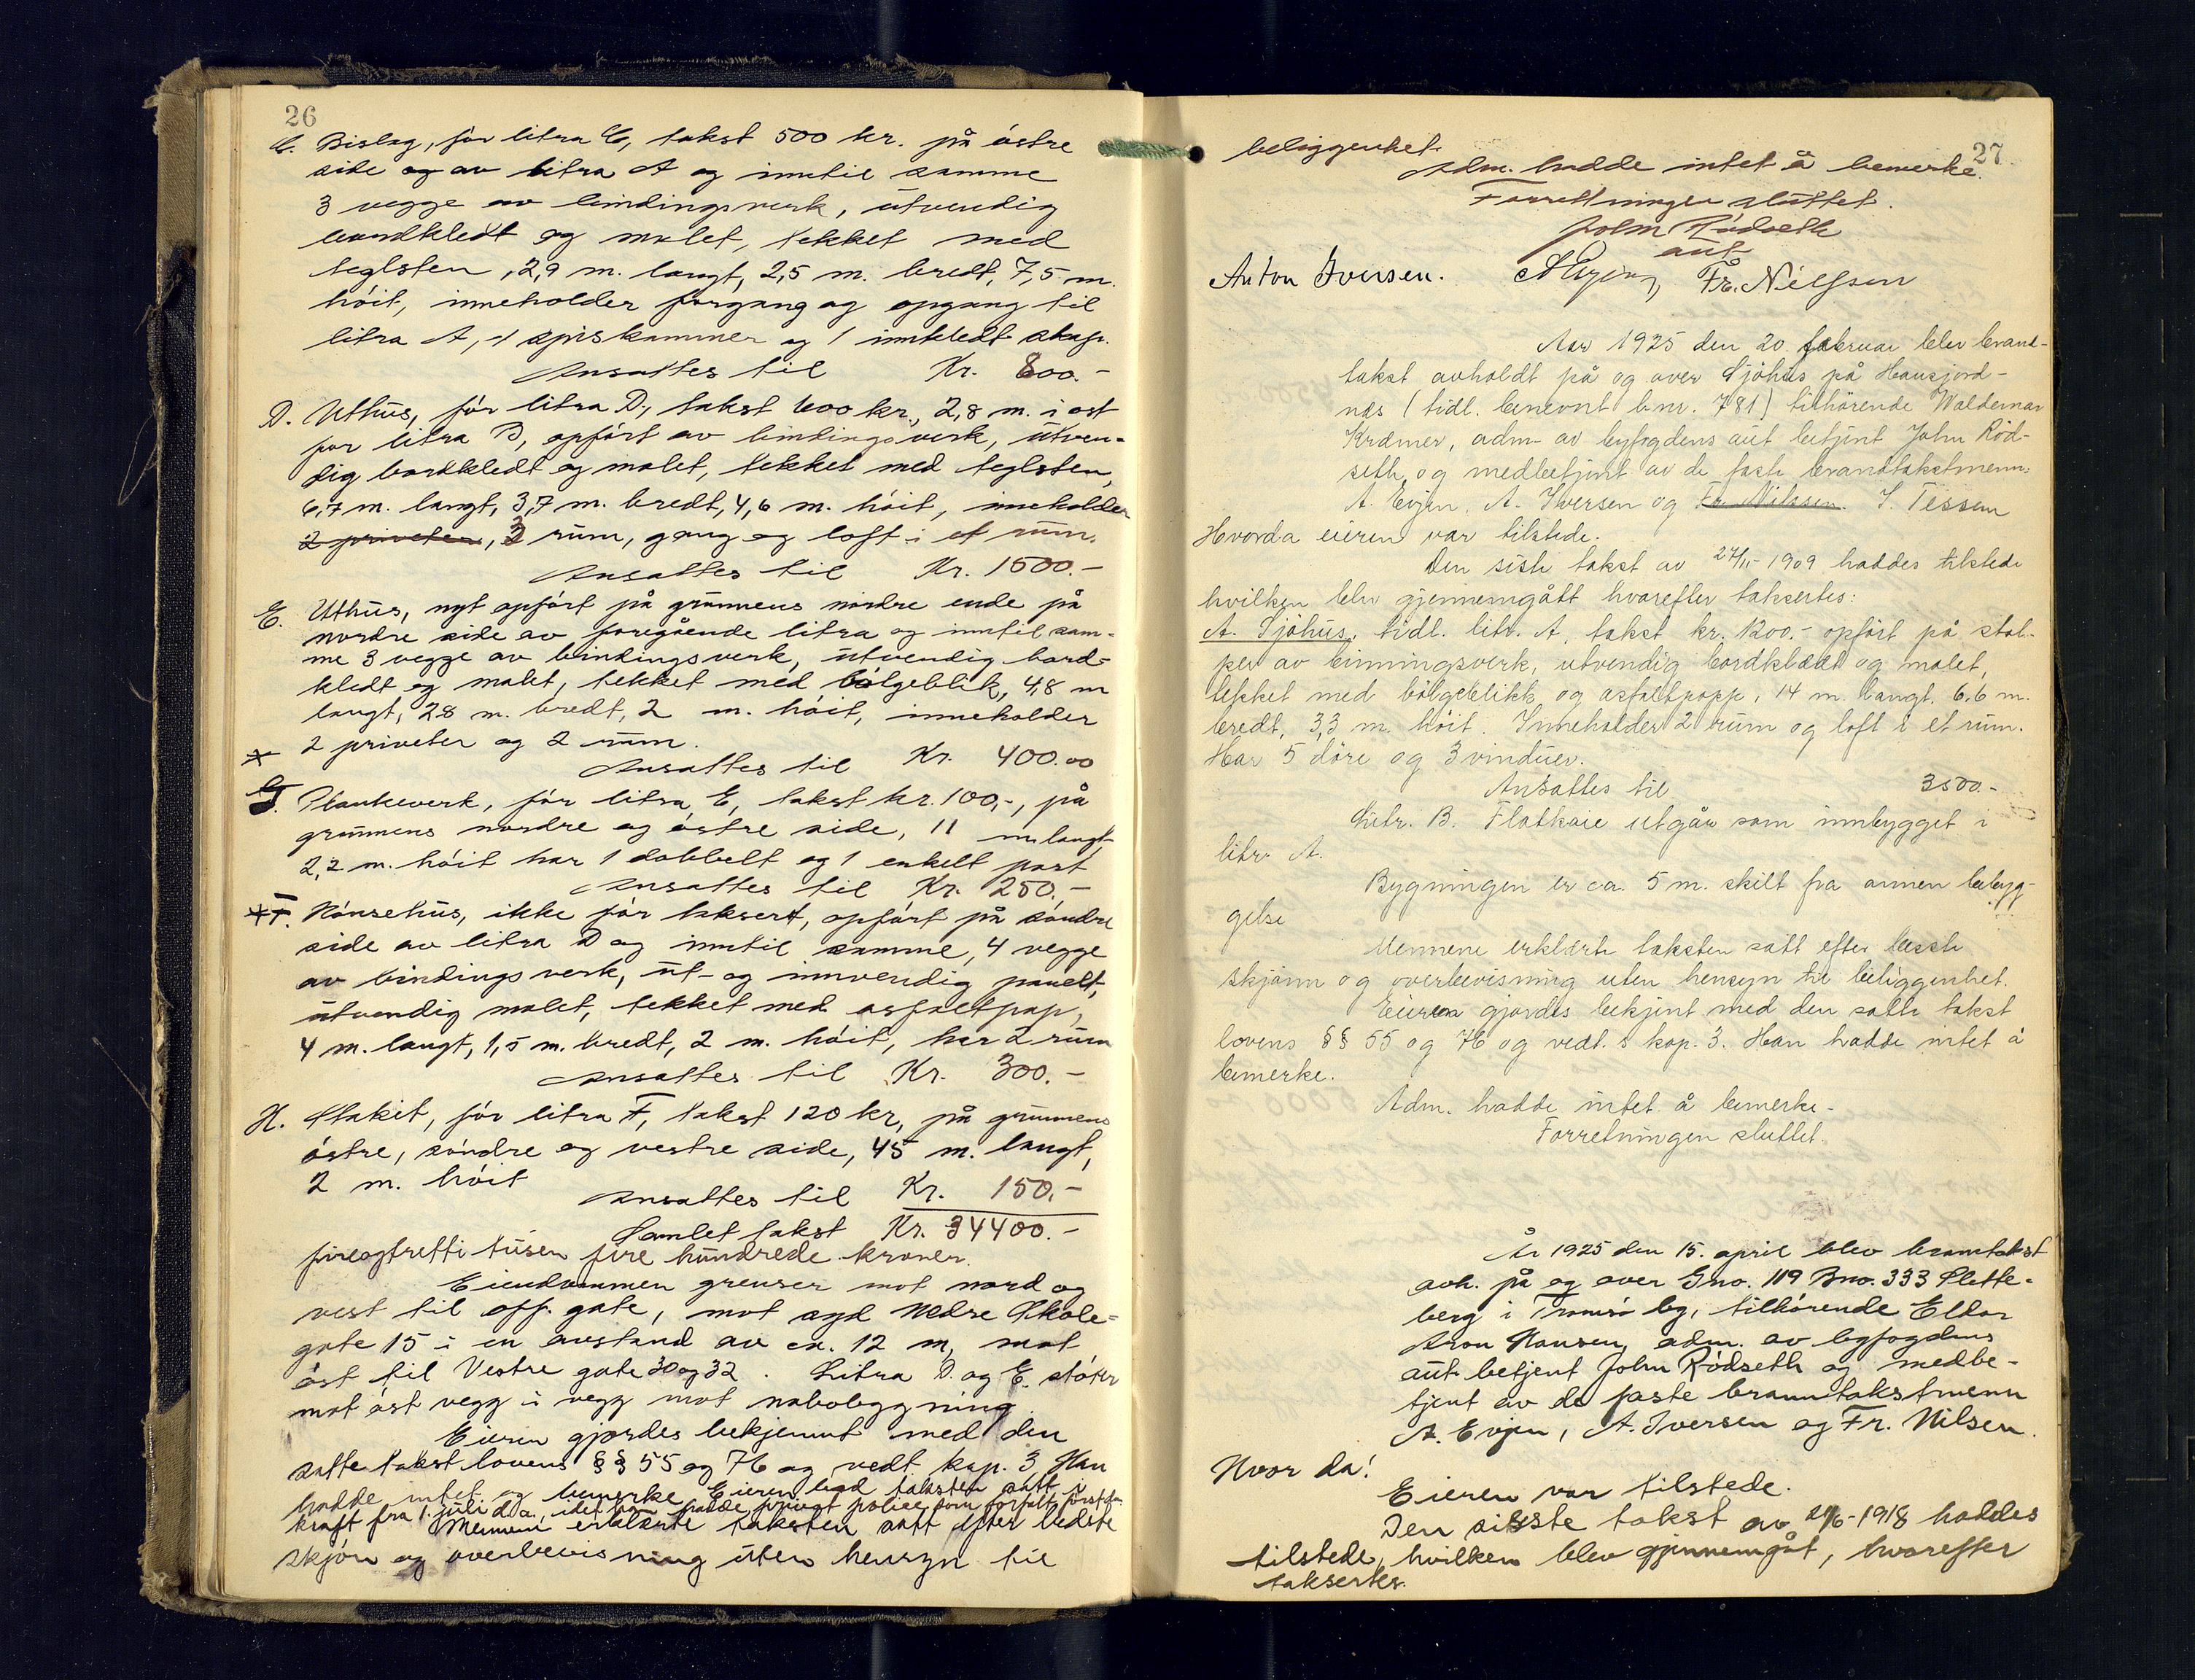 26
C. Bislag, før litra C, takst 500 kr. på østre
side og av litra A og inntil samme
3 vegge av bindingsverk, utvendig
bordkledt og malet, tekket med
teglsten, 2,9 m. langt, 2,5 m. bredt, 7,5 m.
høit, inneholder forgang og opgang til
litra A, 1 spiskammer og 1 innkledt skap.
Ansattes til Kr. 800.-
D. Uthus, før litra D, takst 600 kr., 2,8 m. i øst
for litra B, opført av bindingsverk, utven-
dig bordkledt og malet, tekket med teglsten,
6,7 m. langt, 3,7 m. bredt, 4,6 m. høit, inneholder
2 priveter, 3 rum, gang og loft i et rum.
Ansattes til Kr. 1500.-
E. Uthus, nyt opført på grunnens nordre ende på
nordre side av foregående litra og inntil sam-
me 3 vegge av bindingsverk, utvendig bord-
kledt og malet, tekket med bølgeblik, 4,8 m
langt, 2,8 m. bredt, 2 m. høit, inneholder
2 priveter og 2 rum.
Ansattes til Kr. 400.00
G. Plankeverk, før litra E, takst kr. 100,-, på
grunnens nordre og østre side, 11 m. langt
2,2 m. høit har 1 dobbelt og 1 enkelt port
Ansattes til Kr. 250,-
F. Hønsehus, ikke før taksert, opført på søndre
side av litra D og inntil samme, 4 vegge
av bindingsverk, ut- og innvendig panelt,
utvendig malet, tekket med asfaltpap,
4 m. langt, 1,5 m. bredt, 2 m. høit, har 2 rum
Ansattes til Kr. 300.-
H. Stakit, før litra F, takst 120 kr, på grunnens
østre, søndre og vestre side, 45 m. langt,
2 m. høit
Ansattes til Kr. 150,-
Samlet takst Kr. 34400.-
fireogtretti tusen fire hundrede kroner.
Eiendommen grenser mot nord og
vest til off. gate, mot syd Nedre Skole-
gate 15 i en avstand av ca. 12 m, mot
øst til Vestre gate 30 og 32. Litra D. og E. støter
mot øst vegg i vegg mot nabobygning
Eieren gjordes bekjennt med den
satte takst lovens §§ 55 og 76 og vedt. kap. 3. Han
hadde intet og bemerke. Eieren bad taksten satt i
kraft fra 1. juli d.a., idet han hadde privat police som forfalt først da
Mennene erklærte taksten satt efter bedste
skjøn og overbevisning uten hensyn til
27
beliggenhet.
Adm. hadde intet å bemerke.
Forretningen sluttet.
John Rødseth
aut
Anton Iversen. A Evjen, Fr. Nielsen
Aar 1925 den 20. februar blev brand-
takst avholdt på og over Sjøhus på Hansjord-
nes (tidl. benevnt b.nr. 781) tilhørende Waldemar
Kræmer, adm. av byfogdens aut. betjent John Rød-
seth og medbetjent av de faste brandtakstmenn:
A. Evjen, A. Iversen og Fr. Nilssen. S. Tessem
Hvorda eieren var tilstede.
Den siste takst av 27/11- 1909 haddes tilstede
hvilken blev gjennemgått hvorefter taksertes:
A. Sjøhus, tidl. litr. A, takst kr. 1200.- opført på stol-
per av binningsverk, utvendig bordklædt og malet,
tekket med bølgeblikk og asfaltpapp, 14 m. langt, 6,6 m.
bredt, 3,3 m. høit. Inneholder 2 rum og loft i et rum.
Har 5 døre og 3 vinduer.
Ansattes til 3500.-
Litr. B. Flatkaie utgår som innbygget i
litr. A.
Bygningen er ca. 5 m. skilt fra annen bebyg-
gelse
Mennene erklærte taksten satt efter beste
skjønn og overbevisning uten hensyn til beliggenhet.
Eieren gjordes bekjent med den satte takst
lovens §§ 55 og 76 og vedt.s kap. 3. Han hadde intet å
bemerke.
Adm. hadde intet å bemerke.
Forretningen sluttet.
År 1925 den 15. april blev branntakst
avh. på og over Gno. 119 Bno. 333 Slette-
berg i Tromsø by, tilhørende Eldor
Aron Hansen, adm. av byfogdens
aut betjent John Rødseth og medbe-
tjent av de faste branntakstmenn
A. Evjen, A. Iversen og Fr. Nilsen.
Hvor da!
Eieren var tilstede.
Den sisste takst av 21/6-1918 haddes
tilstede, hvilken blev gjennemgåt, hvorefter
taksertes.